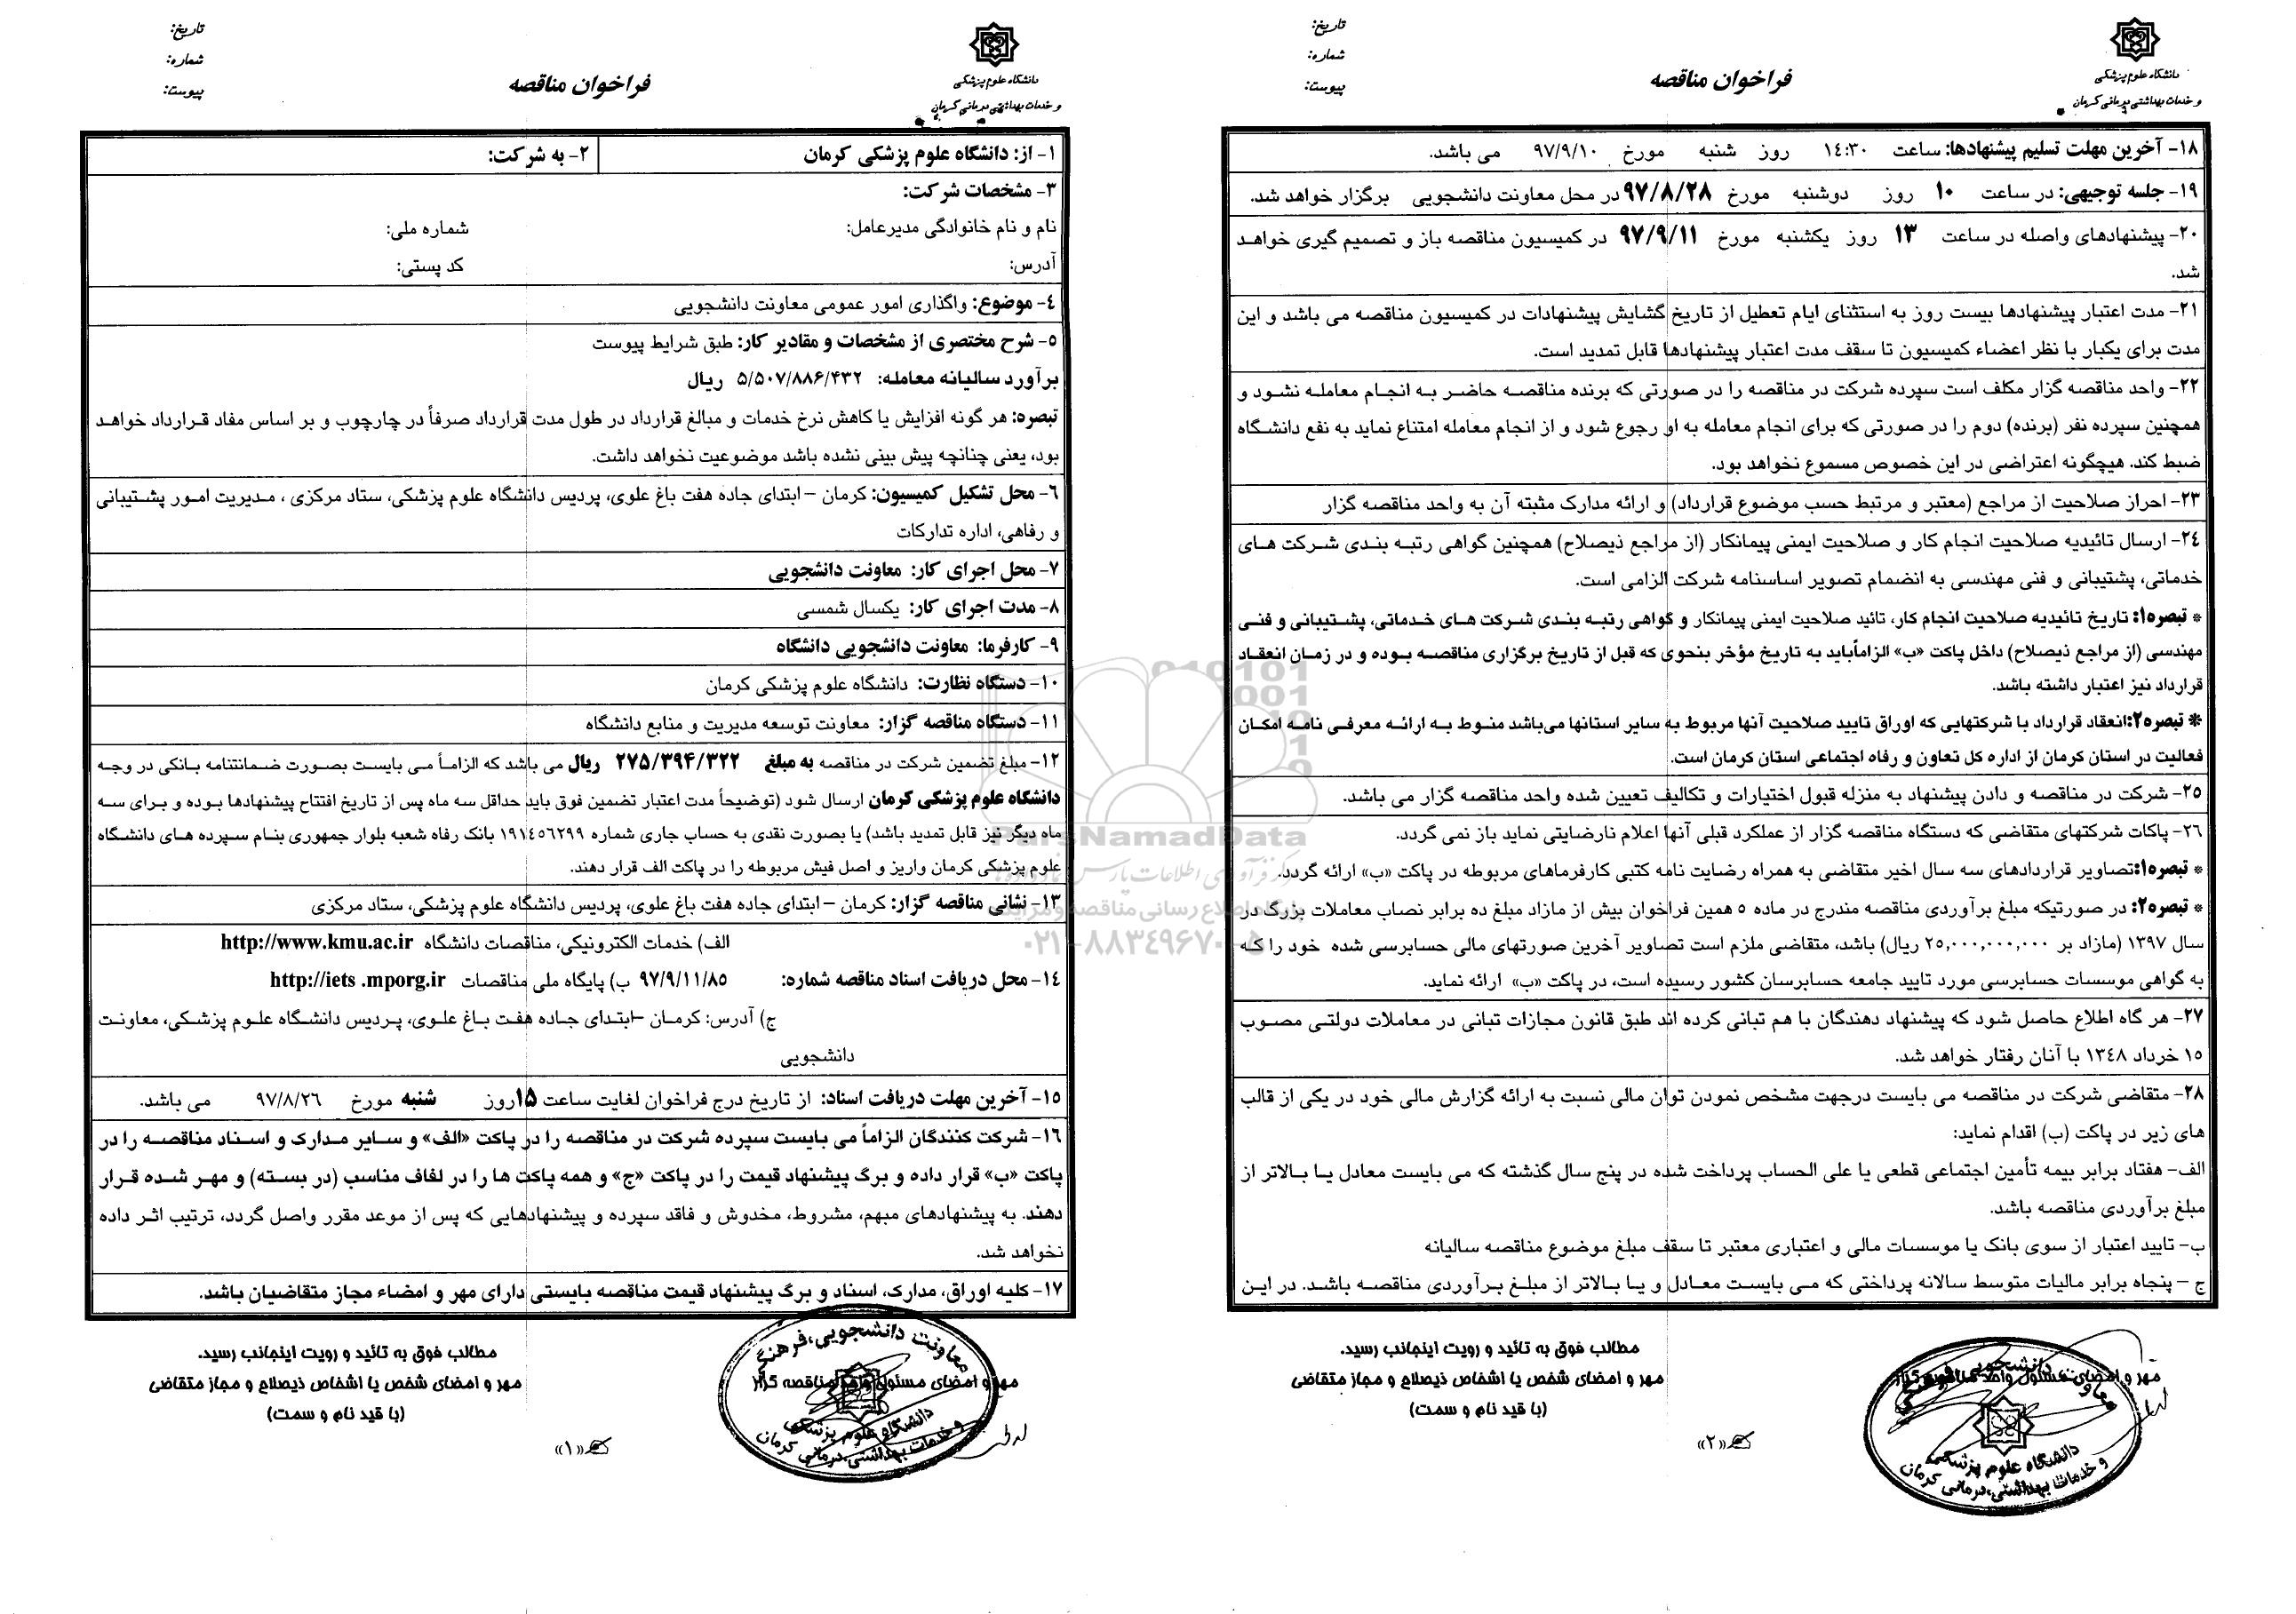 دانشگاه علوم پزشکی
و خدمات بهداشتی درمانی کرمان
فراخوان مناقصه
تاریخ:
شماره:
پیوست:
۱- از: دانشگاه علوم پزشکی کرمان
۲- به شرکت:
۳- مشخصات شرکت:
نام و نام خانوادگی مدیرعامل: شماره ملی:
آدرس: کد پستی:
۴- موضوع: واگذاری امور عمومی معاونت دانشجویی
۵- شرح مختصری از مشخصات و مقادیر کار: طبق شرایط پیوست
برآورد سالیانه معامله: ۵/۵۰۷/۸۸۶/۴۳۲ ریال
تبصره: هر گونه افزایش یا کاهش نرخ خدمات و مبالغ قرارداد در طول مدت قرارداد صرفاً در چارچوب و بر اساس مفاد قرارداد خواهد
بود، یعنی چنانچه پیش بینی نشده باشد موضوعیت نخواهد داشت.
۶- محل تشکیل کمیسیون: کرمان – ابتدای جاده هفت باغ علوی، پردیس دانشگاه علوم پزشکی، ستاد مرکزی ، مدیریت امور پشتیبانی
و رفاهی، اداره تدارکات
۷- محل اجرای کار: معاونت دانشجویی
۸- مدت اجرای کار: یکسال شمسی
۹- کارفرما: معاونت دانشجویی دانشگاه
۱۰- دستگاه نظارت: دانشگاه علوم پزشکی کرمان
۱۱- دستگاه مناقصه گزار: معاونت توسعه مدیریت و منابع دانشگاه
۱۲- مبلغ تضمین شرکت در مناقصه به مبلغ ۲۷۵/۳۹۴/۳۲۲ ریال می باشد که الزاماً می بایست بصورت ضمانتنامه بانکی در وجه
دانشگاه علوم پزشکی کرمان ارسال شود (توضیحاً مدت اعتبار تضمین فوق باید حداقل سه ماه پس از تاریخ افتتاح پیشنهادها بوده و برای سه
ماه دیگر نیز قابل تمدید باشد) یا بصورت نقدی به حساب جاری شماره ۱۹۱۴۵۶۲۹۹ بانک رفاه شعبه بلوار جمهوری بنام سپرده های دانشگاه
علوم پزشکی کرمان واریز و اصل فیش مربوطه را در پاکت الف قرار دهند.
۱۳- نشانی مناقصه گزار: کرمان – ابتدای جاده هفت باغ علوی، پردیس دانشگاه علوم پزشکی، ستاد مرکزی
الف) خدمات الکترونیکی، مناقصات دانشگاه http://www.kmu.ac.ir
۱۴- محل دریافت اسناد مناقصه شماره: ۹۷/۹/۱۱/۸۵ ب) پایگاه ملی مناقصات http://iets .mporg.ir
ج) آدرس: کرمان –ابتدای جاده هفت باغ علوی، پردیس دانشگاه علوم پزشکی، معاونت
دانشجویی
۱۵- آخرین مهلت دریافت اسناد: از تاریخ درج فراخوان لغایت ساعت ۱۵روز شنبه مورخ ۹۷/۸/۲۶ می باشد.
۱۶- شرکت کنندگان الزاماً می بایست سپرده شرکت در مناقصه را در پاکت «الف» و سایر مدارک و اسناد مناقصه را در
پاکت «ب» قرار داده و برگ پیشنهاد قیمت را در پاکت «ج» و همه پاکت ها را در لفاف مناسب (در بسته) و مهر شده قرار
دهند. به پیشنهادهای مبهم، مشروط، مخدوش و فاقد سپرده و پیشنهادهایی که پس از موعد مقرر واصل گردد، ترتیب اثر داده
نخواهد شد.
۱۷- کلیه اوراق، مدارک، اسناد و برگ پیشنهاد قیمت مناقصه بایستی دارای مهر و امضاء مجاز متقاضیان باشد.
مطالب فوق به تائید و رویت اینجانب رسید.
مهر و امضای شخص یا اشخاص ذیصلاح و مجاز متقاضی
(با قید نام و سمت)
مهر و امضای مسئول واحد مناقصه گزار
معاونت دانشجویی، فرهنگی
دانشگاه علوم پزشکی
و خدمات بهداشتی، درمانی کرمان
«۱»
دانشگاه علوم پزشکی
و خدمات بهداشتی درمانی کرمان
فراخوان مناقصه
تاریخ:
شماره:
پیوست:
۱۸- آخرین مهلت تسلیم پیشنهادها: ساعت ۱۴:۳۰ روز شنبه مورخ ۹۷/۹/۱۰ می باشد.
۱۹- جلسه توجیهی: در ساعت ۱۰ روز دوشنبه مورخ ۹۷/۸/۲۸ در محل معاونت دانشجویی برگزار خواهد شد.
۲۰- پیشنهادهای واصله در ساعت ۱۳ روز یکشنبه مورخ ۹۷/۹/۱۱ در کمیسیون مناقصه باز و تصمیم گیری خواهد
شد.
۲۱- مدت اعتبار پیشنهادها بیست روز به استثنای ایام تعطیل از تاریخ گشایش پیشنهادات در کمیسیون مناقصه می باشد و این
مدت برای یکبار با نظر اعضاء کمیسیون تا سقف مدت اعتبار پیشنهادها قابل تمدید است.
۲۲- واحد مناقصه گزار مکلف است سپرده شرکت در مناقصه را در صورتی که برنده مناقصه حاضر به انجام معامله نشود و
همچنین سپرده نفر (برنده) دوم را در صورتی که برای انجام معامله به او رجوع شود و از انجام معامله امتناع نماید به نفع دانشگاه
ضبط کند. هیچگونه اعتراضی در این خصوص مسموع نخواهد بود.
۲۳- احراز صلاحیت از مراجع (معتبر و مرتبط حسب موضوع قرارداد) و ارائه مدارک مثبته آن به واحد مناقصه گزار
۲۴- ارسال تائیدیه صلاحیت انجام کار و صلاحیت ایمنی پیمانکار (از مراجع ذیصلاح) همچنین گواهی رتبه بندی شرکت های
خدماتی، پشتیبانی و فنی مهندسی به انضمام تصویر اساسنامه شرکت الزامی است.
* تبصره۱: تاریخ تائیدیه صلاحیت انجام کار، تائید صلاحیت ایمنی پیمانکار و گواهی رتبه بندی شرکت های خدماتی، پشتیبانی و فنی
مهندسی (از مراجع ذیصلاح) داخل پاکت «ب» الزاماًباید به تاریخ مؤخر بنحوی که قبل از تاریخ برگزاری مناقصه بوده و در زمان انعقاد
قرارداد نیز اعتبار داشته باشد.
* تبصره۲:انعقاد قرارداد با شرکتهایی که اوراق تایید صلاحیت آنها مربوط به سایر استانها می‌باشد منوط به ارائه معرفی نامه امکان
فعالیت در استان کرمان از اداره کل تعاون و رفاه اجتماعی استان کرمان است.
۲۵- شرکت در مناقصه و دادن پیشنهاد به منزله قبول اختیارات و تکالیف تعیین شده واحد مناقصه گزار می باشد.
۲۶- پاکات شرکتهای متقاضی که دستگاه مناقصه گزار از عملکرد قبلی آنها اعلام نارضایتی نماید باز نمی گردد.
* تبصره۱:تصاویر قراردادهای سه سال اخیر متقاضی به همراه رضایت نامه کتبی کارفرماهای مربوطه در پاکت «ب» ارائه گردد.
* تبصره۲: در صورتیکه مبلغ برآوردی مناقصه مندرج در ماده ۵ همین فراخوان بیش از مازاد مبلغ ده برابر نصاب معاملات بزرگ در
سال ۱۳۹۷ (مازاد بر ۲۵,۰۰۰,۰۰۰,۰۰۰ ریال) باشد، متقاضی ملزم است تصاویر آخرین صورتهای مالی حسابرسی شده خود را که
به گواهی موسسات حسابرسی مورد تایید جامعه حسابرسان کشور رسیده است، در پاکت «ب» ارائه نماید.
۲۷- هر گاه اطلاع حاصل شود که پیشنهاد دهندگان با هم تبانی کرده اند طبق قانون مجازات تبانی در معاملات دولتی مصوب
۱۵ خرداد ۱۳۴۸ با آنان رفتار خواهد شد.
۲۸- متقاضی شرکت در مناقصه می بایست درجهت مشخص نمودن توان مالی نسبت به ارائه گزارش مالی خود در یکی از قالب
های زیر در پاکت (ب) اقدام نماید:
الف- هفتاد برابر بیمه تأمین اجتماعی قطعی یا علی الحساب پرداخت شده در پنج سال گذشته که می بایست معادل یا بالاتر از
مبلغ برآوردی مناقصه باشد.
ب- تایید اعتبار از سوی بانک یا موسسات مالی و اعتباری معتبر تا سقف مبلغ موضوع مناقصه سالیانه
ج – پنجاه برابر مالیات متوسط سالانه پرداختی که می بایست معادل و یا بالاتر از مبلغ برآوردی مناقصه باشد. در این
مطالب فوق به تائید و رویت اینجانب رسید.
مهر و امضای شخص یا اشخاص ذیصلاح و مجاز متقاضی
(با قید نام و سمت)
مهر و امضای مسئول واحد مناقصه گزار
معاونت دانشجویی، فرهنگی
دانشگاه علوم پزشکی
و خدمات بهداشتی، درمانی کرمان
«۲»
NamadData
۰۲۱-۸۸۳۴۹۶۷۰-۵